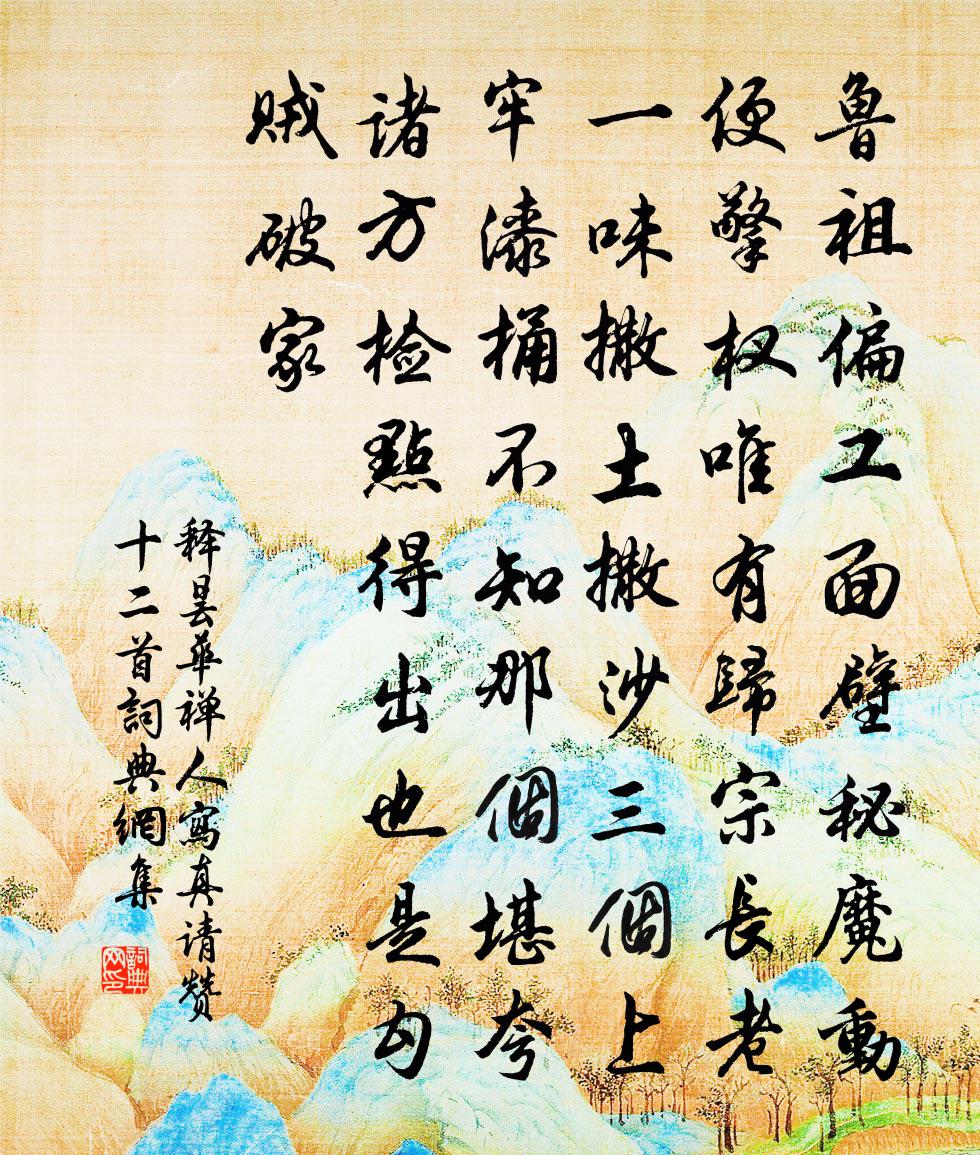 鲁祖偏工面壁秘魔動
便擎权唯有歸宗長老
一味撒土撒沙三個上
牢漆桶不知那個堪夸
诸方检點得出也是勾
贼破家
释昙華禅人寫真请赞
十二首詞典網集
詞典
网印